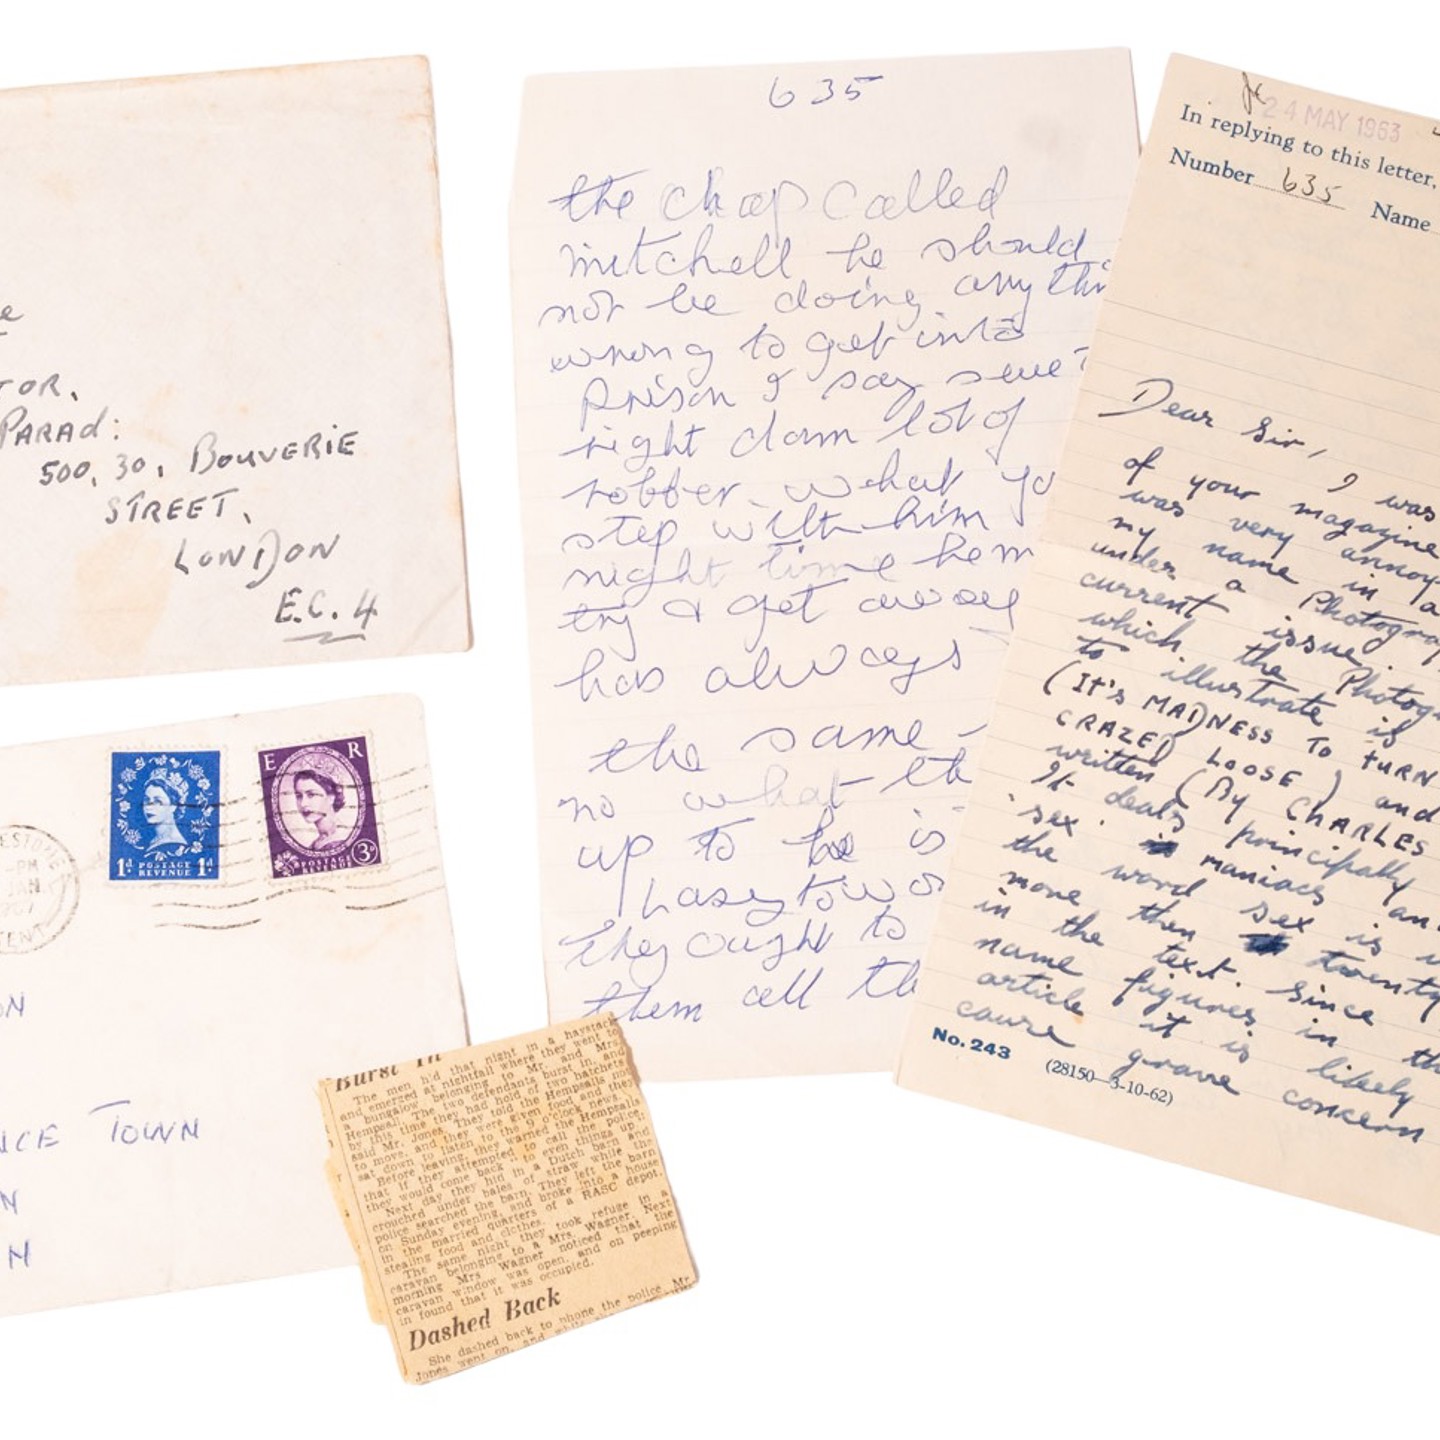 TOR,
PARAD:
500, 30, BOUVERIE
STREET,
LONDON
E.C. 4
E R
1d POSTAGE 1d
REVENUE
POSTAGE
REVENUE 3d
PM
JAN
KENT
ON
NCE TOWN
N
N
635
the chap called
mitchell he should
not be doing anythin
wrong to get into
Prison I say
right dam lot of
robber. what yo
step with him
night time hem
try & get away
has always
the same
no what th
up to he is
they ought to
them all th
Burst In
The men hid that night in a haystack
and emerged at nightfall where they went to
a bungalow belonging to Mr. and Mrs.
Hempsall. The two defendants burst in, and
by this time they had hold of two hatchets
said Mr. Jones. They told the Hempsalls not
to move, and they were given food and they
sat down to listen to the 9 o'clock news.
Before leaving, they warned the Hempsalls
that if they attempted to call the police,
they would come back to even things up.
Next day they hid in a Dutch barn and
crouched under bales of straw while the
police searched the barn. They left the barn
on Sunday evening, and broke into a house
in the married quarters of a RASC depot,
stealing food and clothes.
The same night they took refuge in a
caravan belonging to a Mrs. Wagner. Next
morning Mrs Wagner noticed that the
caravan window was open, and on peeping
in found that it was occupied.
Dashed Back
She dashed back to phone the police, Mr
Jones went on, and
24 MAY 1963
In replying to this letter,
Number 635 Name
Dear Sir, I was
of your magazine
was very annoy
my name in a
under a Photogra
current issue.
which the Photog
to illustrate is
(IT'S MADNESS TO TURN
CRAZED LOOSE) and
written (By CHARLES
It deals principally
'sex' maniacs an
the word sex is
more then twenty
in the text. Since
name figures in th
article it is likely
cause grave concern
No. 243 (28150—3-10-62)